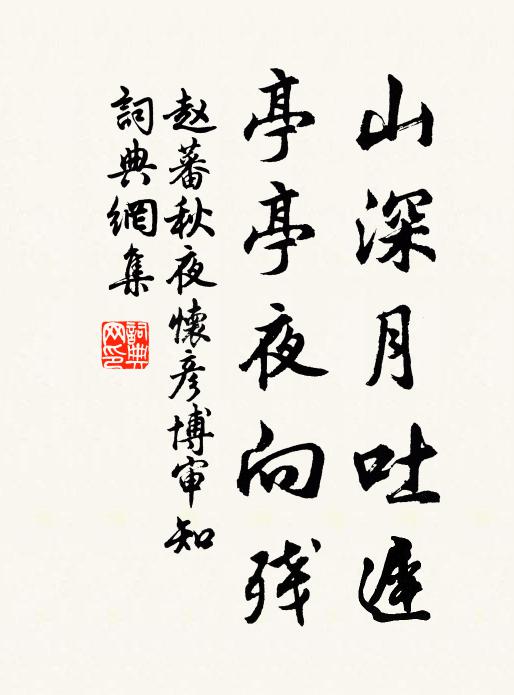 山深月吐遲
亭亭夜向残
赵蕃秋夜懷彦博审知
詞典網集
詞典网印